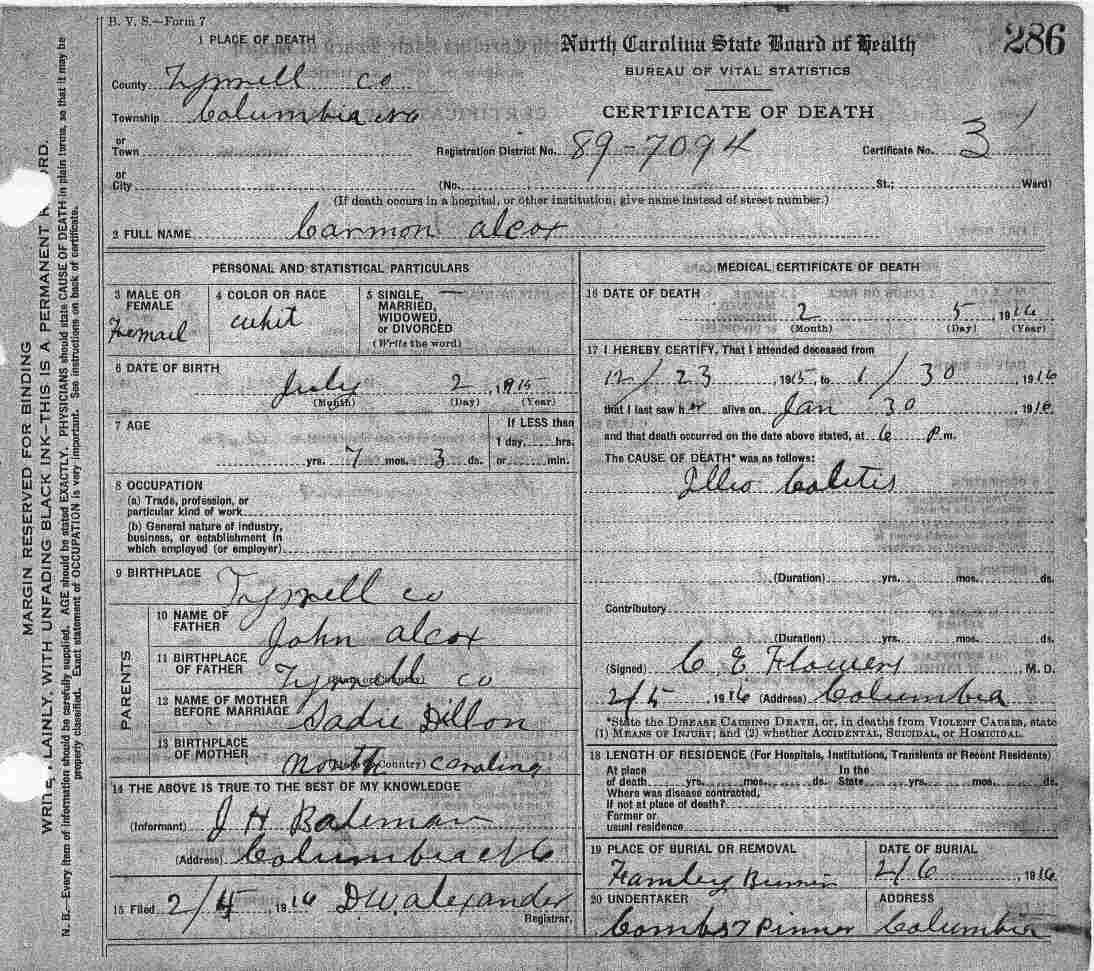 B. V. S.—Form 7
286
1 PLACE OF DEATH
North Carolina State Board of Health
BUREAU OF VITAL STATISTICS
CERTIFICATE OF DEATH
County Tyrrell co
Township Columbia NC
or
Town
Registration District No. 89-7094
Certificate No. 3
or
City
(No. St.; Ward)
(If death occurs in a hospital, or other institution, give name instead of street number.)
2 FULL NAME Carmon alcox
PERSONAL AND STATISTICAL PARTICULARS
3 MALE OR FEMALE
Femail
4 COLOR OR RACE
whit
5 SINGLE, MARRIED, WIDOWED, or DIVORCED
(Write the word) —
6 DATE OF BIRTH
July 2, 1915
(Month) (Day) (Year)
7 AGE
If LESS than
1 day, hrs.
yrs. 7 mos. 3 ds. or min.
8 OCCUPATION
(a) Trade, profession, or
particular kind of work
(b) General nature of industry,
business, or establishment in
which employed (or employer)
9 BIRTHPLACE
Tyrrell co
PARENTS
10 NAME OF FATHER
John alcox
11 BIRTHPLACE OF FATHER
Tyrrell co
12 NAME OF MOTHER BEFORE MARRIAGE
Sadie Dillon
13 BIRTHPLACE OF MOTHER
North carolina
14 THE ABOVE IS TRUE TO THE BEST OF MY KNOWLEDGE
(Informant) J H Bateman
(Address) Columbia NC
15 Filed 2/4, 1916 D.W. alexander
Registrar.
MEDICAL CERTIFICATE OF DEATH
16 DATE OF DEATH
2 5, 1916
(Month) (Day) (Year)
17 I HEREBY CERTIFY, That I attended deceased from
12/23 1915, to 1/30, 1916
that I last saw her alive on Jan 30 1916
and that death occurred on the date above stated, at 6 P m.
The CAUSE OF DEATH* was as follows:
Illio Colitis
(Duration) yrs. mos. ds.
Contributory
(Duration) yrs. mos. ds.
(Signed) C E Flowers, M. D.
2/5 1916 (Address) Columbia
*State the DISEASE CAUSING DEATH, or, in deaths from VIOLENT CAUSES, state
(1) MEANS OF INJURY; and (2) whether ACCIDENTAL, SUICIDAL, or HOMICIDAL.
18 LENGTH OF RESIDENCE (For Hospitals, Institutions, Transients or Recent Residents)
At place of death yrs. mos. ds. In the State yrs. mos. ds.
Where was disease contracted,
If not at place of death?
Former or
usual residence
19 PLACE OF BURIAL OR REMOVAL
DATE OF BURIAL
2/6, 1916
20 UNDERTAKER
ADDRESS
Combs & Pinner Columbia
MARGIN RESERVED FOR BINDING
LAINLY, WITH UNFADING BLACK INK—THIS IS A PERMANENT
N. B.—Every item of information should be carefully supplied. AGE should be stated EXACTLY. PHYSICIANS should state CAUSE OF DEATH in plain terms, so that it may be
properly classified. Exact statement of OCCUPATION is very important. See instructions on back of certificate.